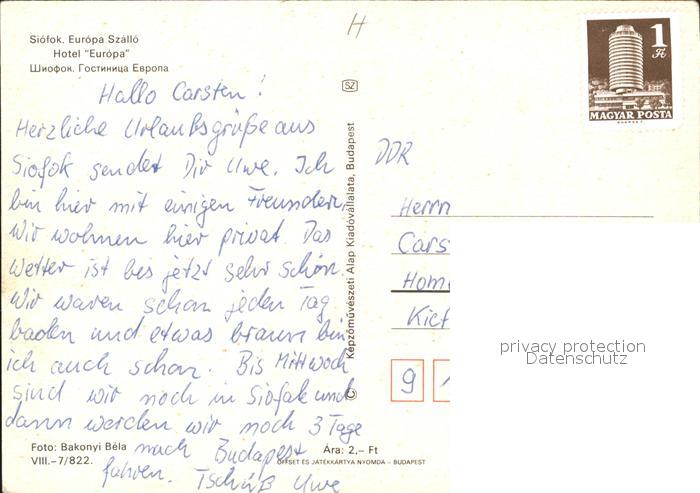 Siófok. Európa Szálló
Hotel "Európa"
Шиофок. Гостиница Европа
Hallo Carsten!
Herzliche Urlaubsgrüße aus
Siofok sendet Dir Uwe. Ich
bin hier mit einigen Freunden,
wir wohnen hier privat. Das
Wetter ist bis jetzt sehr schön.
Wir waren schon jeden Tag
baden und etwas braun bin
ich auch schon. Bis Mittwoch
sind wir noch in Siofok und
dann werden wir noch 3 Tage
nach Budapest
fahren. Tschüß Uwe
Foto: Bakonyi Béla
VIII.–7/822.
Ára: 2,– Ft
OFFSET ÉS JÁTÉKKÁRTYA NYOMDA – BUDAPEST
SZ
© Képzőművészeti Alap Kiadóvállalata, Budapest
H
1
Ft
MAGYAR POSTA
DDR
Herrn
Cars
Hom
Kief
9
privacy protection
Datenschutz